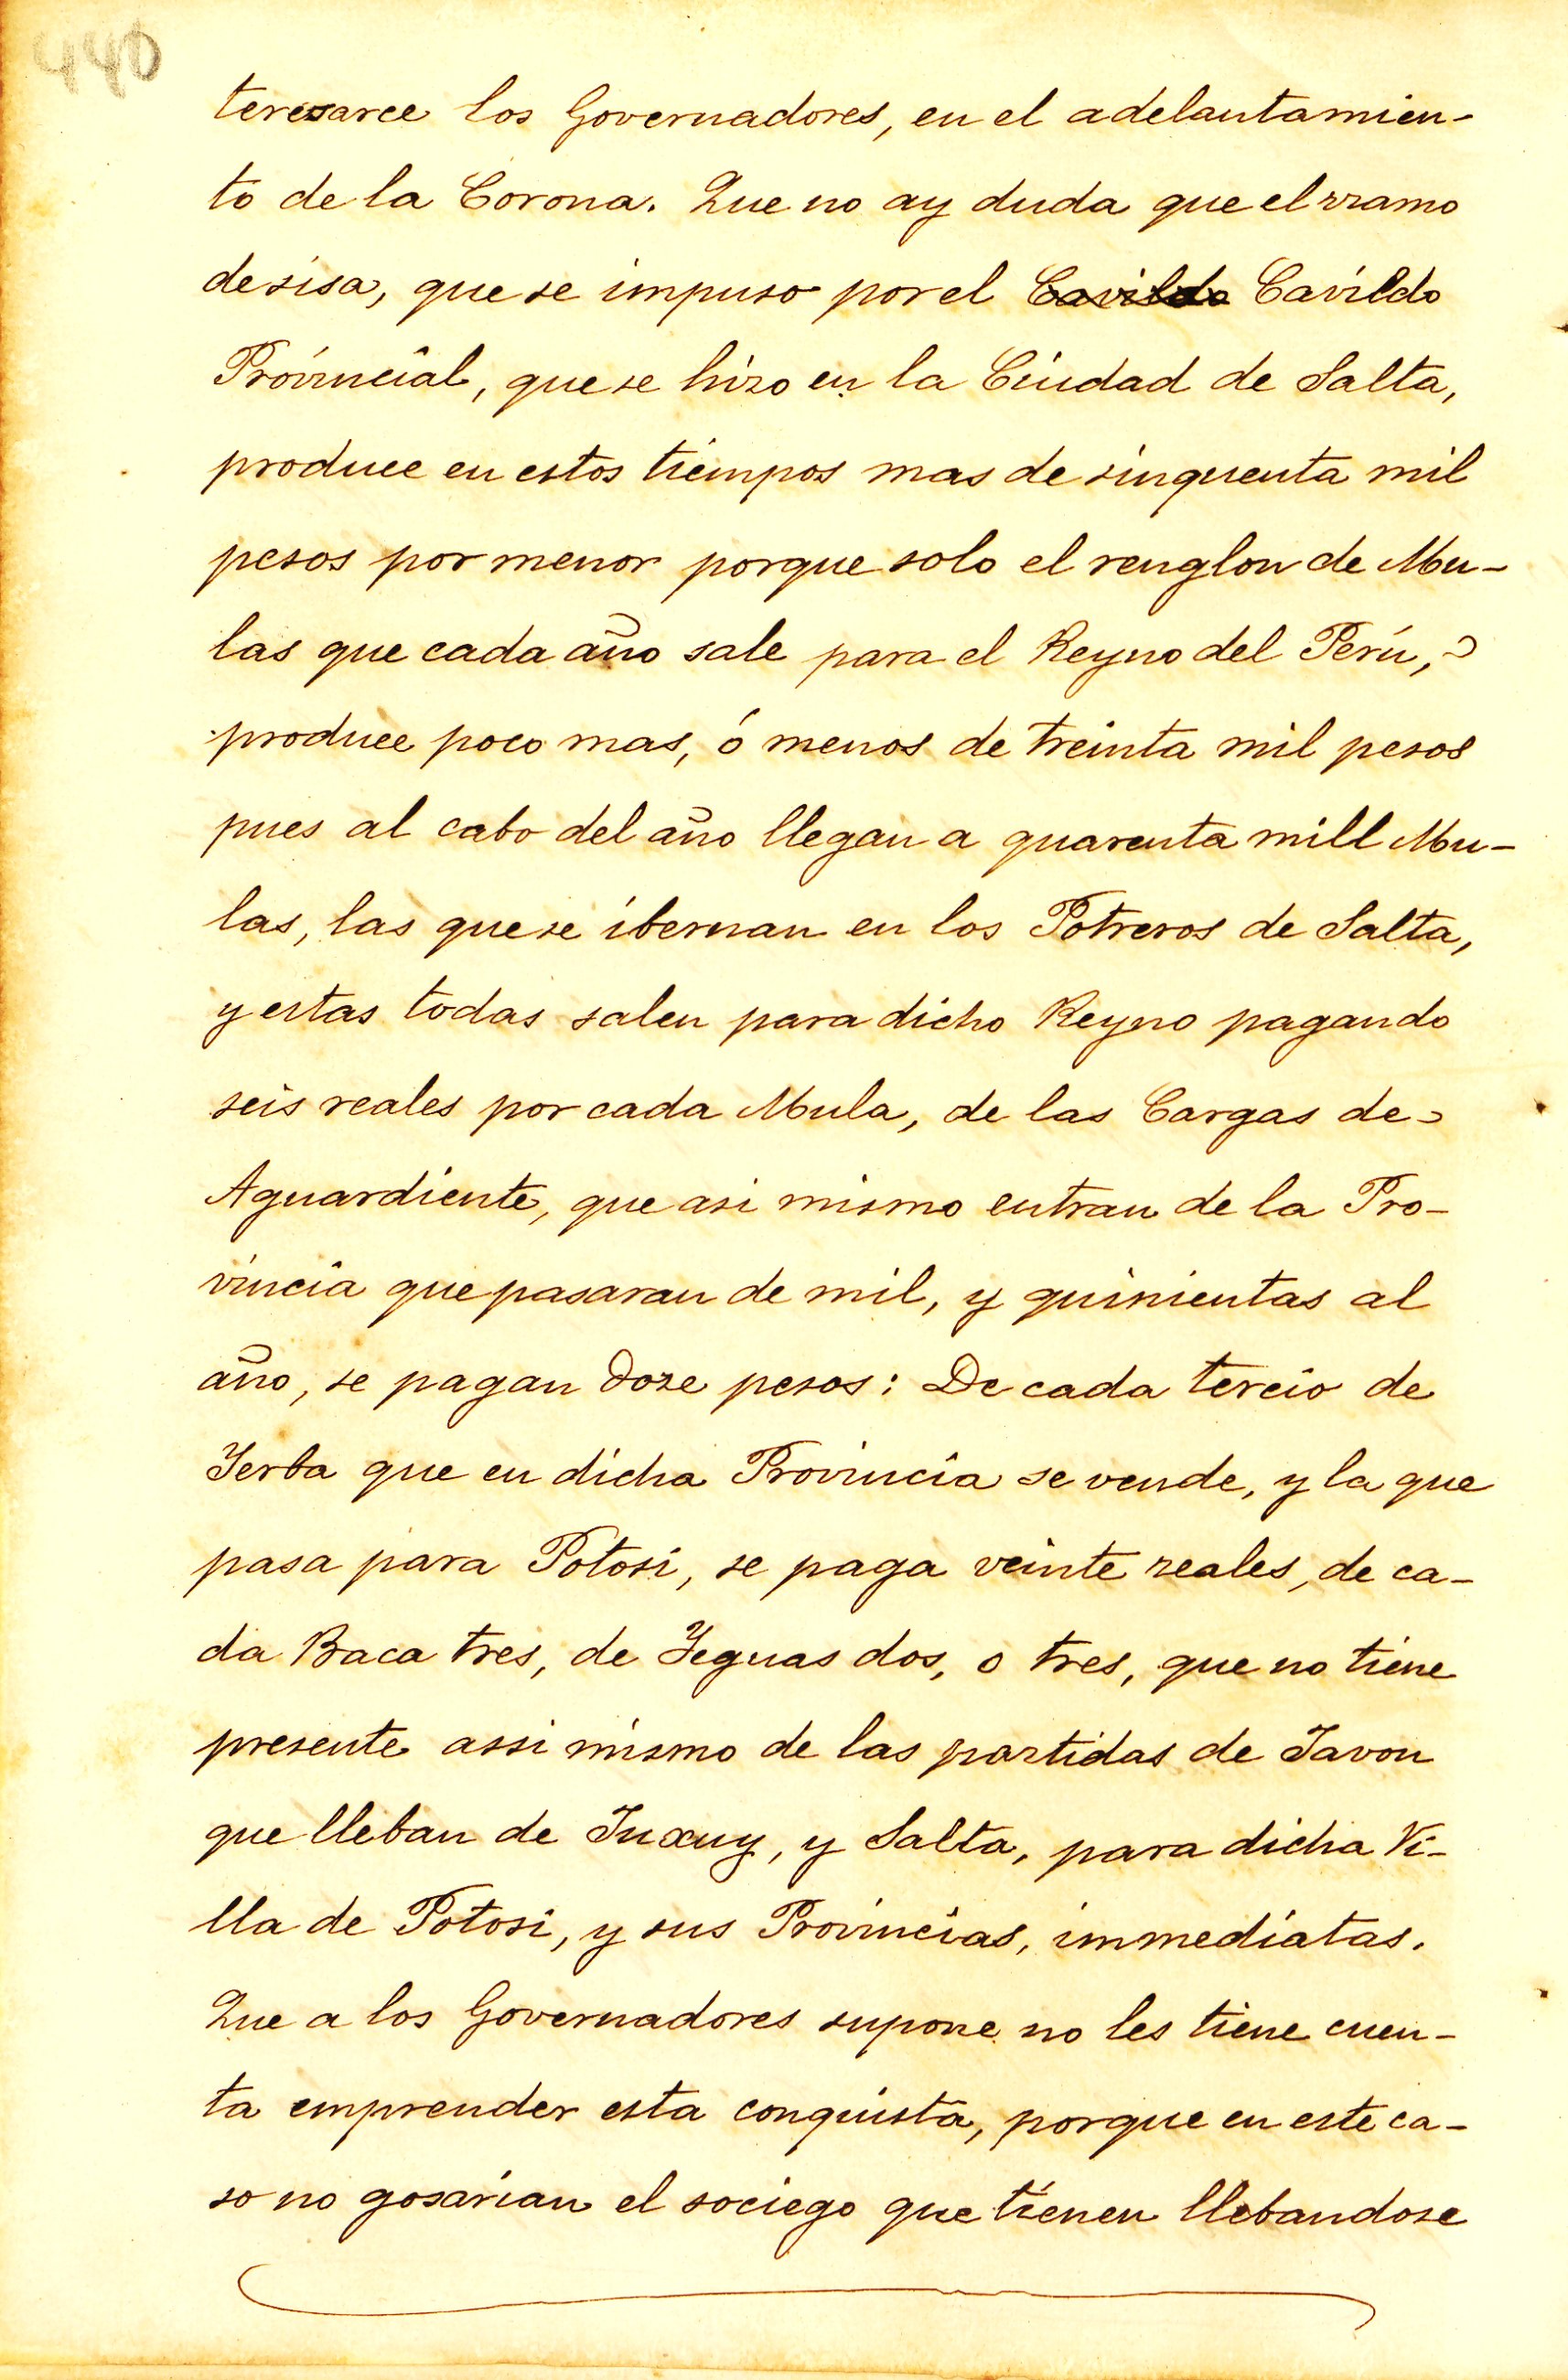 440
teresarce los Governadores, en el adelantamien-
to de la Corona. Que no ay duda que el rramo
de sisa, que se impuso por el Cavildo Cavildo
Provincial, que se hizo en la Ciudad de Salta,
produce en estos tiempos mas de sinquenta mil
pesos por menor porque solo el renglon de Mu-
las que cada año sale para el Reyno del Perú,
produce poco mas, ó menos de treinta mil pesos
pues al cabo del año llegan a quarenta mill Mu-
las, las que se ibernan en los Potreros de Salta,
y estas todas salen para dicho Reyno pagando
seis reales por cada Mula, de las Cargas de
Aguardiente, que asi mismo entran de la Pro-
vincia que pasaran de mil, y quinientas al
año, se pagan doze pesos: De cada tercio de
Yerba que en dicha Provincia se vende, y la que
pasa para Potosi, se paga veinte reales, de ca-
da Baca tres, de Yeguas dos, o tres, que no tiene
presente assi mismo de las partidas de Javon
que lleban de Juxuy, y Salta, para dicha Vi-
lla de Potosi, y sus Provincias, immediatas.
Que a los Governadores supone no les tiene cuen-
ta emprender esta conquista, porque en este ca-
so no gosarian el sociego que tienen llebandose